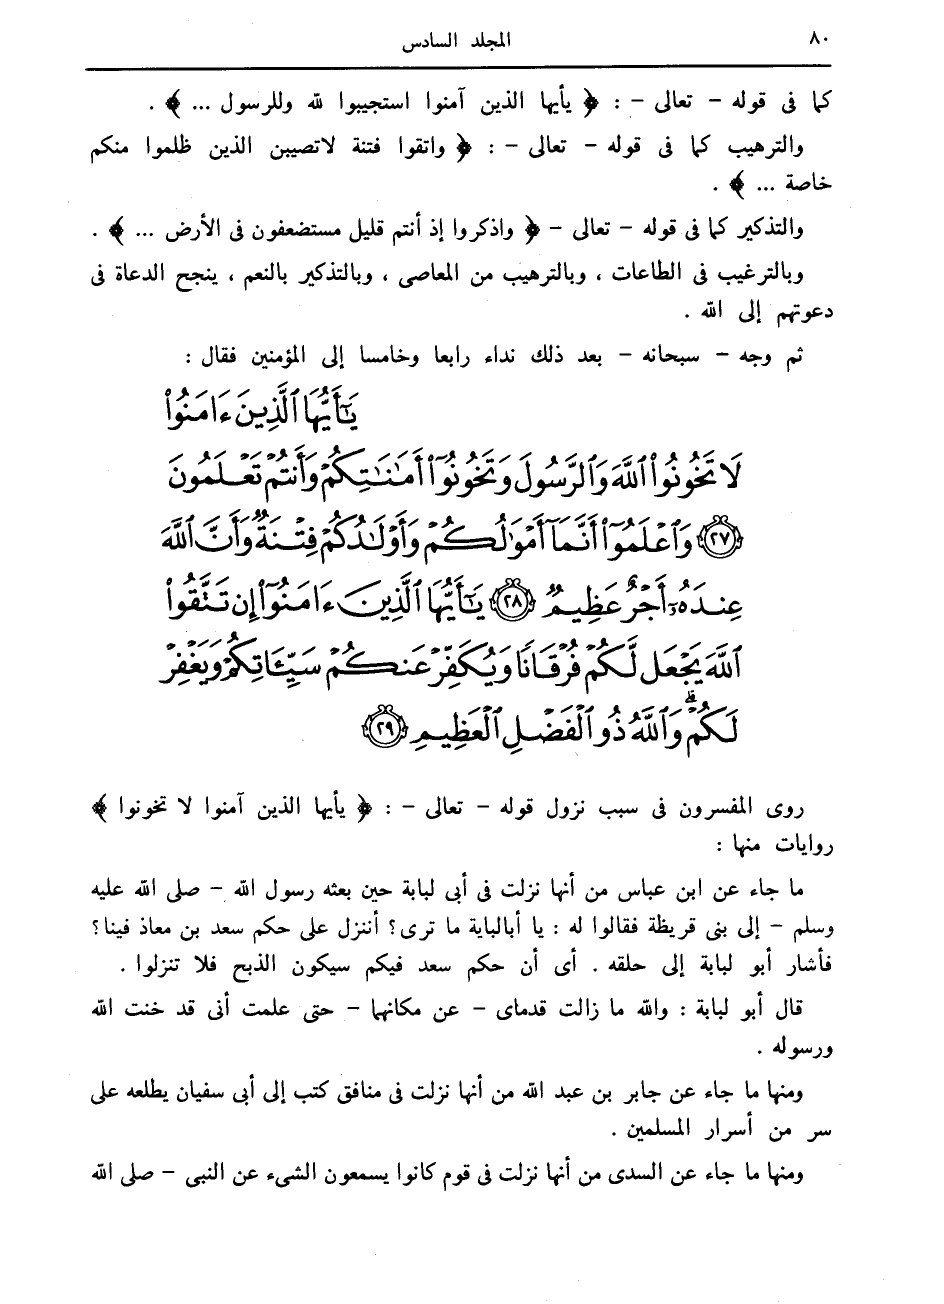 ٨٠ المجلد السادس
كما فى قوله – تعالى – : ﴿ يأيها الذين آمنوا استجيبوا لله وللرسول ... ﴾ .
والترهيب كما فى قوله – تعالى – : ﴿ واتقوا فتنة لاتصيبن الذين ظلموا منكم
خاصة ... ﴾ .
والتذكير كما فى قوله – تعالى – ﴿ واذكروا إذ أنتم قليل مستضعفون فى الأرض ... ﴾ .
وبالترغيب فى الطاعات ، وبالترهيب من المعاصى ، وبالتذكير بالنعم ، ينجح الدعاة فى
دعوتهم إلى الله .
ثم وجه – سبحانه – بعد ذلك نداء رابعا وخامسا إلى المؤمنين فقال :
يَٰٓأَيُّهَا ٱلَّذِينَ ءَامَنُوا۟
لَا تَخُونُوا۟ ٱللَّهَ وَٱلرَّسُولَ وَتَخُونُوٓا۟ أَمَٰنَٰتِكُمْ وَأَنتُمْ تَعْلَمُونَ
﴿٢٧﴾ وَٱعْلَمُوٓا۟ أَنَّمَآ أَمْوَٰلُكُمْ وَأَوْلَٰدُكُمْ فِتْنَةٌ وَأَنَّ ٱللَّهَ
عِندَهُۥٓ أَجْرٌ عَظِيمٌ ﴿٢٨﴾ يَٰٓأَيُّهَا ٱلَّذِينَ ءَامَنُوٓا۟ إِن تَتَّقُوا۟
ٱللَّهَ يَجْعَل لَّكُمْ فُرْقَانًا وَيُكَفِّرْ عَنكُمْ سَيِّـَٔاتِكُمْ وَيَغْفِرْ
لَكُمْ ۗ وَٱللَّهُ ذُو ٱلْفَضْلِ ٱلْعَظِيمِ ﴿٢٩﴾
روى المفسرون فى سبب نزول قوله – تعالى – : ﴿ يأيها الذين آمنوا لا تخونوا ﴾
روايات منها :
ما جاء عن ابن عباس من أنها نزلت فى أبى لبابة حين بعثه رسول الله – صلى الله عليه
وسلم – إلى بنى قريظة فقالوا له : يا أبالباية ما ترى؟ أننزل على حكم سعد بن معاذ فينا؟
فأشار أبو لبابة إلى حلقه . أى أن حكم سعد فيكم سيكون الذبح فلا تنزلوا .
قال أبو لبابة : والله ما زالت قدماى – عن مكانهما – حتى علمت أنى قد خنت الله
ورسوله .
ومنها ما جاء عن جابر بن عبد الله من أنها نزلت فى منافق كتب إلى أبى سفيان يطلعه على
سر من أسرار المسلمين .
ومنها ما جاء عن السدى من أنها نزلت فى قوم كانوا يسمعون الشىء عن النبى – صلى الله